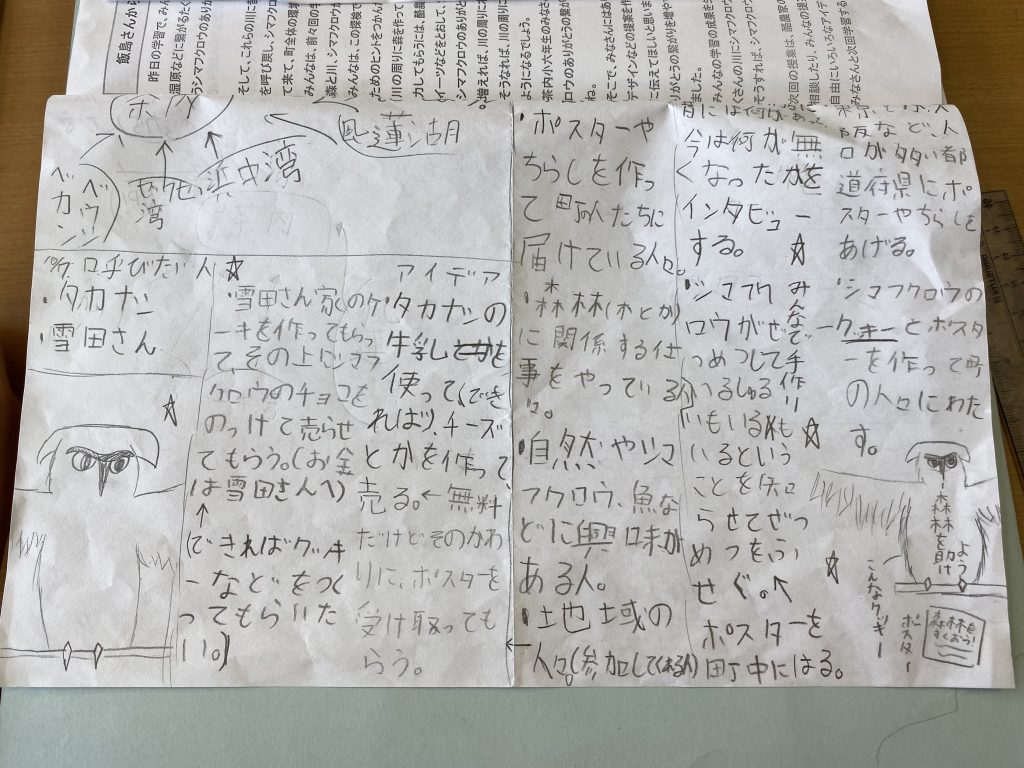 飯島さんから
昨日の学習で、み
湿原などに繋がるたく
うシマフクロウのありが
そして、これらの川に音
を呼び戻し、シマフクロ
て来て、町全体の環境
みんなは、前々回の学
森と川、シマフクロウか
みんなは、この探検で
ためのヒントをつかんだ
川の周りに森を作って
力してもらうには、酪農
イーツなどをとおして、
シマフクロウのありがと
増えれば、川の周りに木
そうなれば、川の周りに
ようになるでしょう。
茶内小六年生のみなさ
ロウのありがとうの繋が
ね。
そこで、みなさんにはあ
デザインなどの提案を作
に伝えてほしいと思いま
りがとうの繋がりを増や
ました。
みんなの学習の成果を生
くさんの川にシマフクロウ
そうすれば、シマフクロウ
次回の授業は、酪農家の
相談したり、みんなの提
自由にいろいろなアイデ
みなさんと次回学習する
茶内
風蓮湖
浜中湾
琵琶
湾
ベカン
ベウシ
10/7. 呼びたい人☆
・タカナシ
・雪田さん
アイデア
・雪田さん家のケ
ーキを作ってもらっ
て、その上にシマフ
クロウのチョコを
のっけて売らせ
てもらう。(お金
は雪田さんへ)
↑
(できればクッキ
ーなどをつく
ってもらいた
い。)
・タカナシの
牛乳を
使って(でき
れば)、チーズ
とかを作って、
売る。←無料
だけどそのかわ
りに、ポスターを
受け取っても
らう。
・ポスターや
ちらしを作っ
て町人たちに
届けている人々。
・森林(木とか)
に関係する仕
事をやっている人
々。
・自然やシマ
フクロウ、魚な
どに興味が
ある人。
・地域の
人々(参加してくれる人)
今は何が無
くなったかを
インタビュー
する。
☆
・シマフク
ロウがぜ
つめつして
いるしゅる
いもいる
いるという
ことを知
らせてぜっ
めつをふ
せぐ。↖
みんなで手作り
☆
ポスターを
町中にはる。
阪など、人
口が多い都
道府県にポ
スターやちらしを
あげる。
・シマフクロウの
クッキーとポスタ
ーを作って町
の人々にわた
す。
森林を助け
よう
こんなクッキー
ポスター